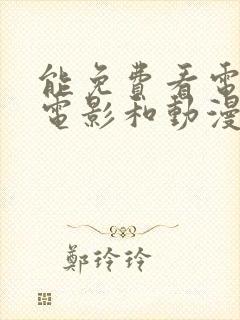 能免費看電
電影和動漫
鄭玲玲